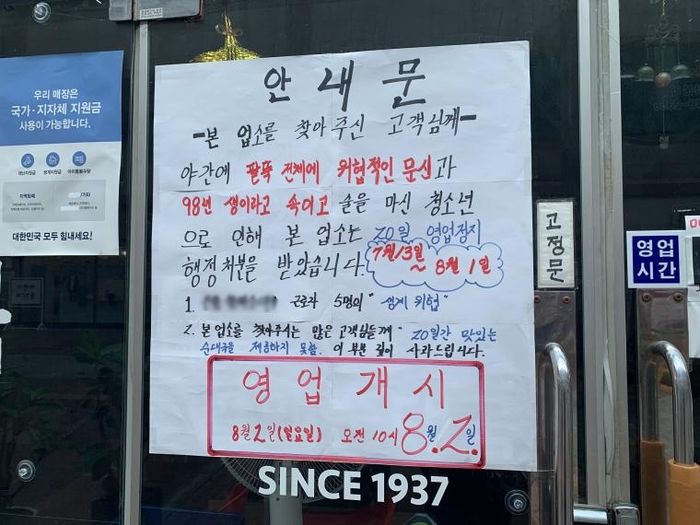 우리 매장은
국가·지자체 지원금
사용이 가능합니다.
대한민국 모두 힘내세요!
안내문
-본 업소를 찾아주신 고객님께-
야간에 팔뚝 전체에 위협적인 문신과
98년 생이라고 속이고 술을 마신 청소년
으로 인해 본 업소는 20일 영업정지
행정처분을 받았습니다.
7월/13일
~ 8월 1일
1. 근로자 5명의 "생계 위협"
2. 본 업소를 찾아주시는 많은 고객님들께 "20일간 맛있는
순대국을 제공하지 못함. 이 부분 깊이 사과드립니다.
영업개시
8월 2일(일요일) 오전 10시 8월.2.일
SINCE 1937
고정문
영업
시간